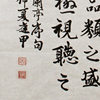 品類之盛
極視聽之
蘭亭序句
夏